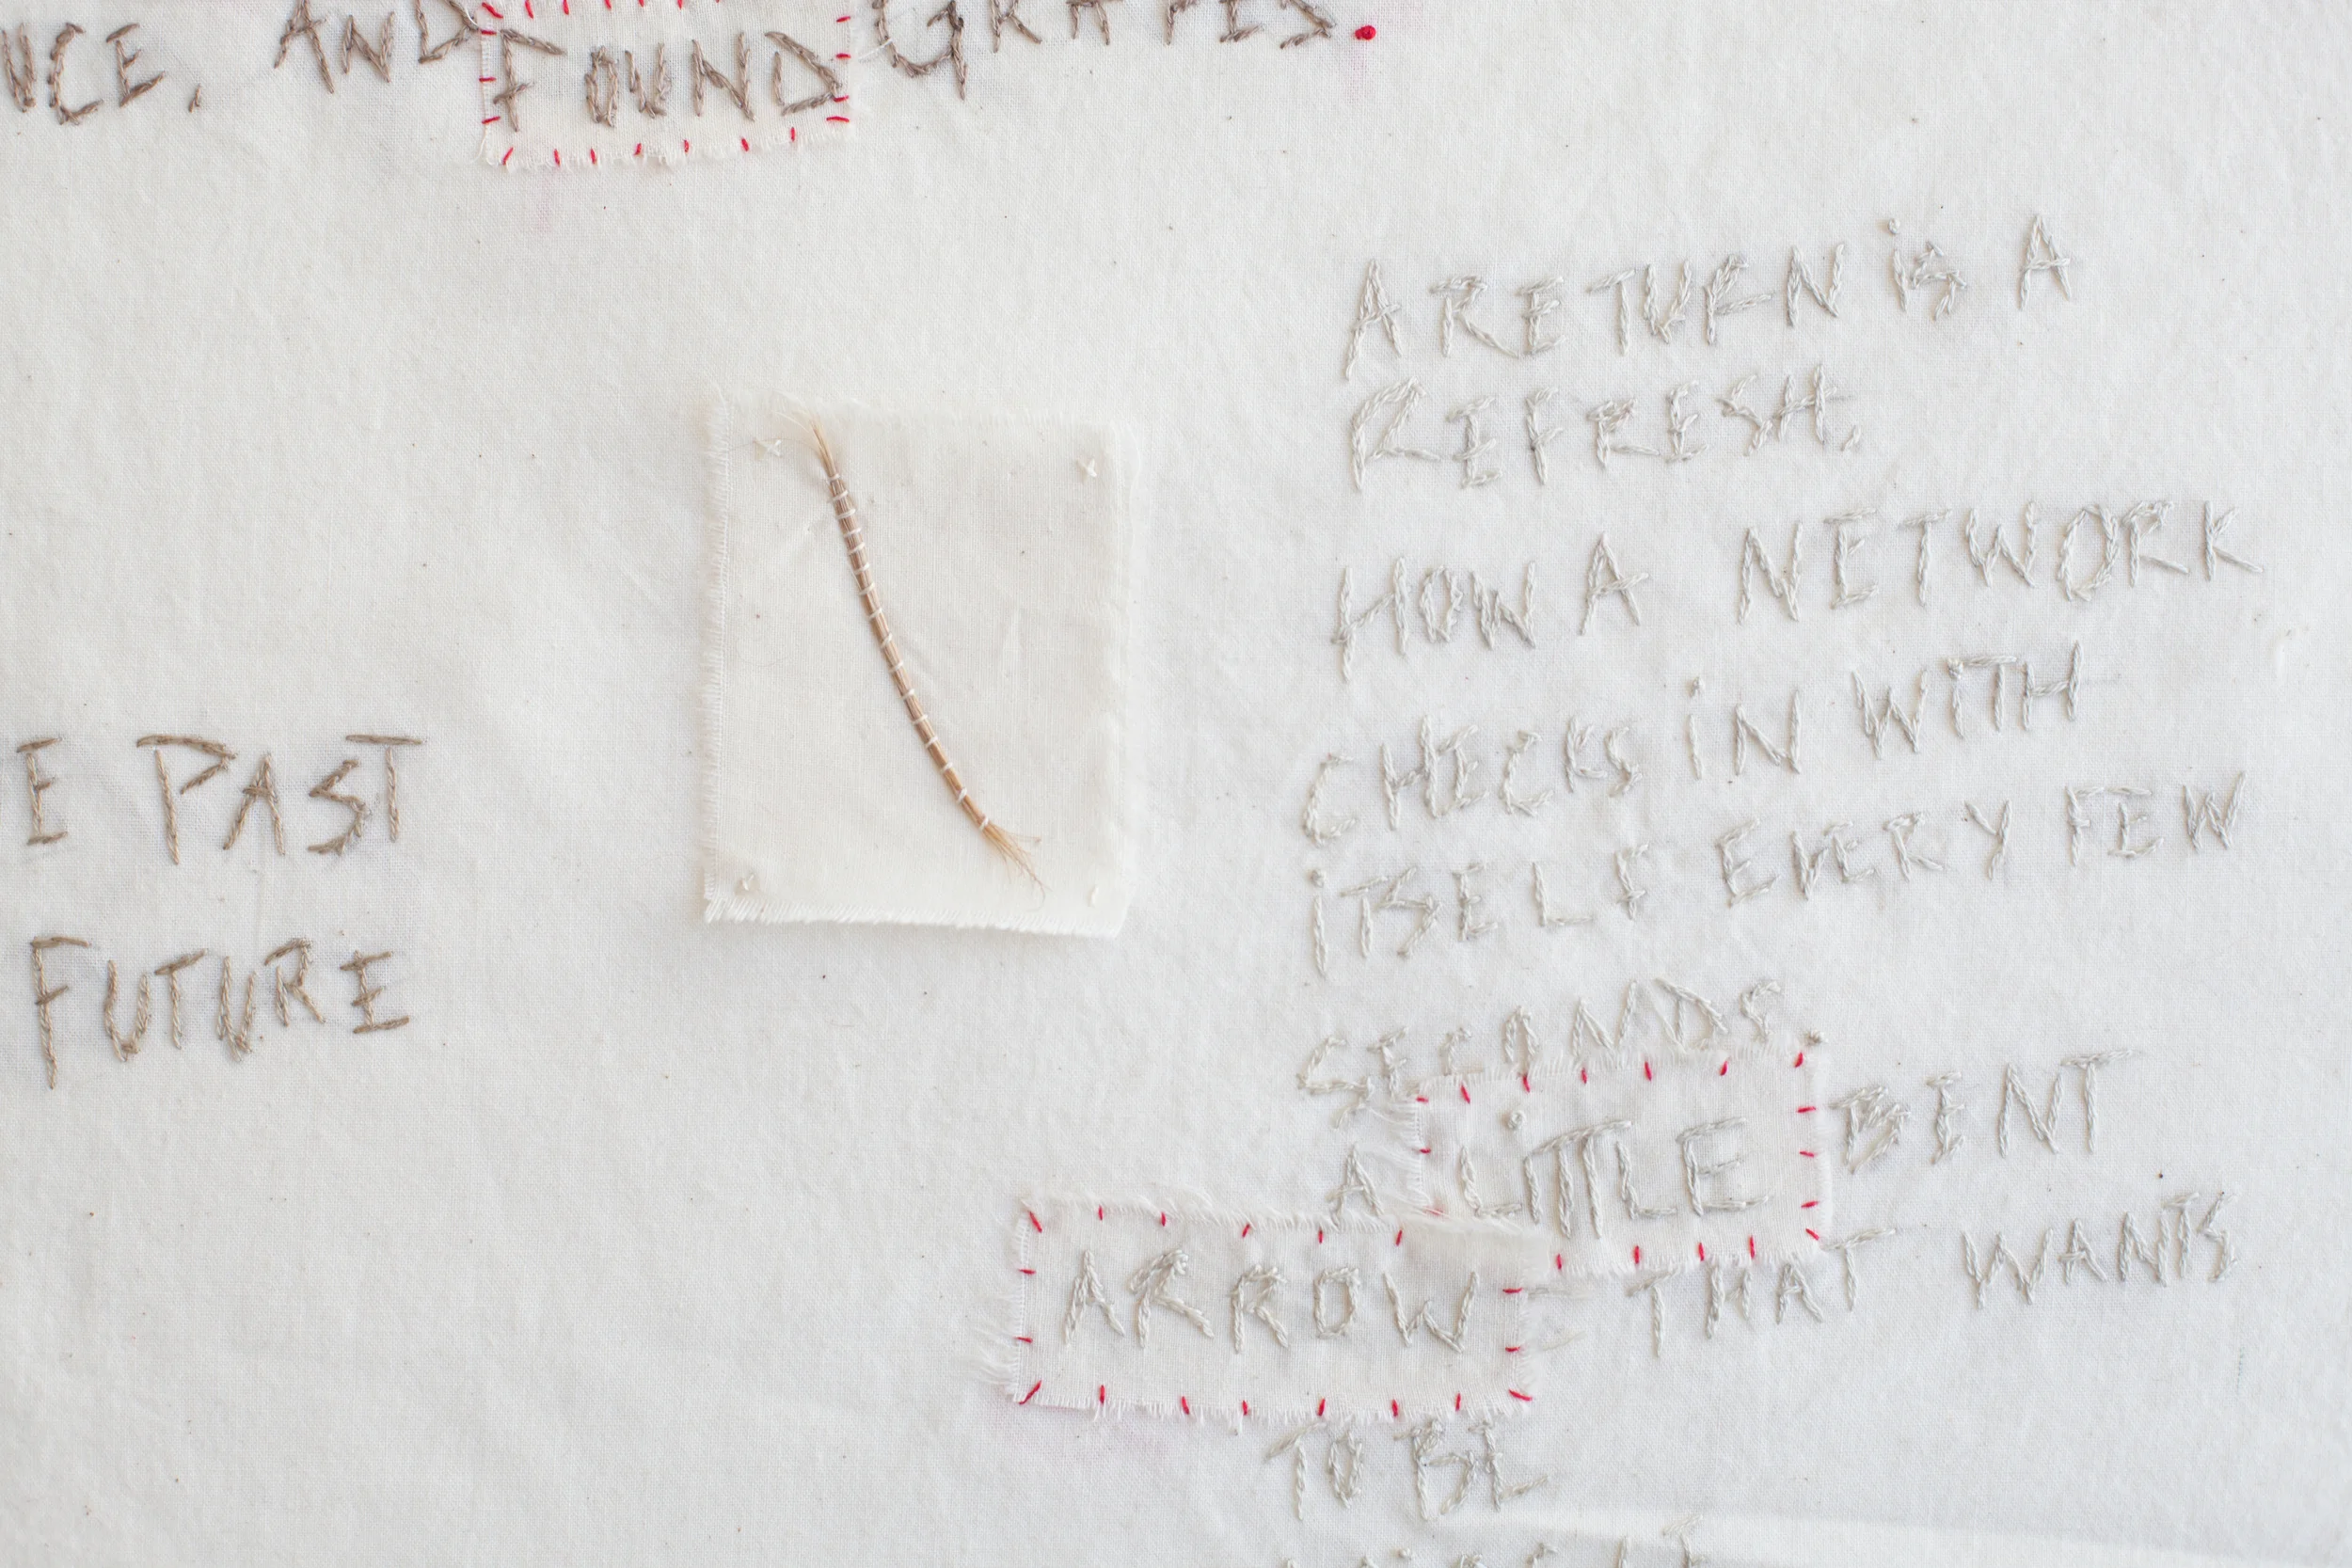 AND FOUND GRAPES.
E PAST
FUTURE
A RETURN iS A
REFRESH.
HOW A NETWORK
CHECKS iN WiTH
iTSELF EVERY FEW
SECANDS.
A LiTTLE BENT
ARROW THAT WANTS
TO BE